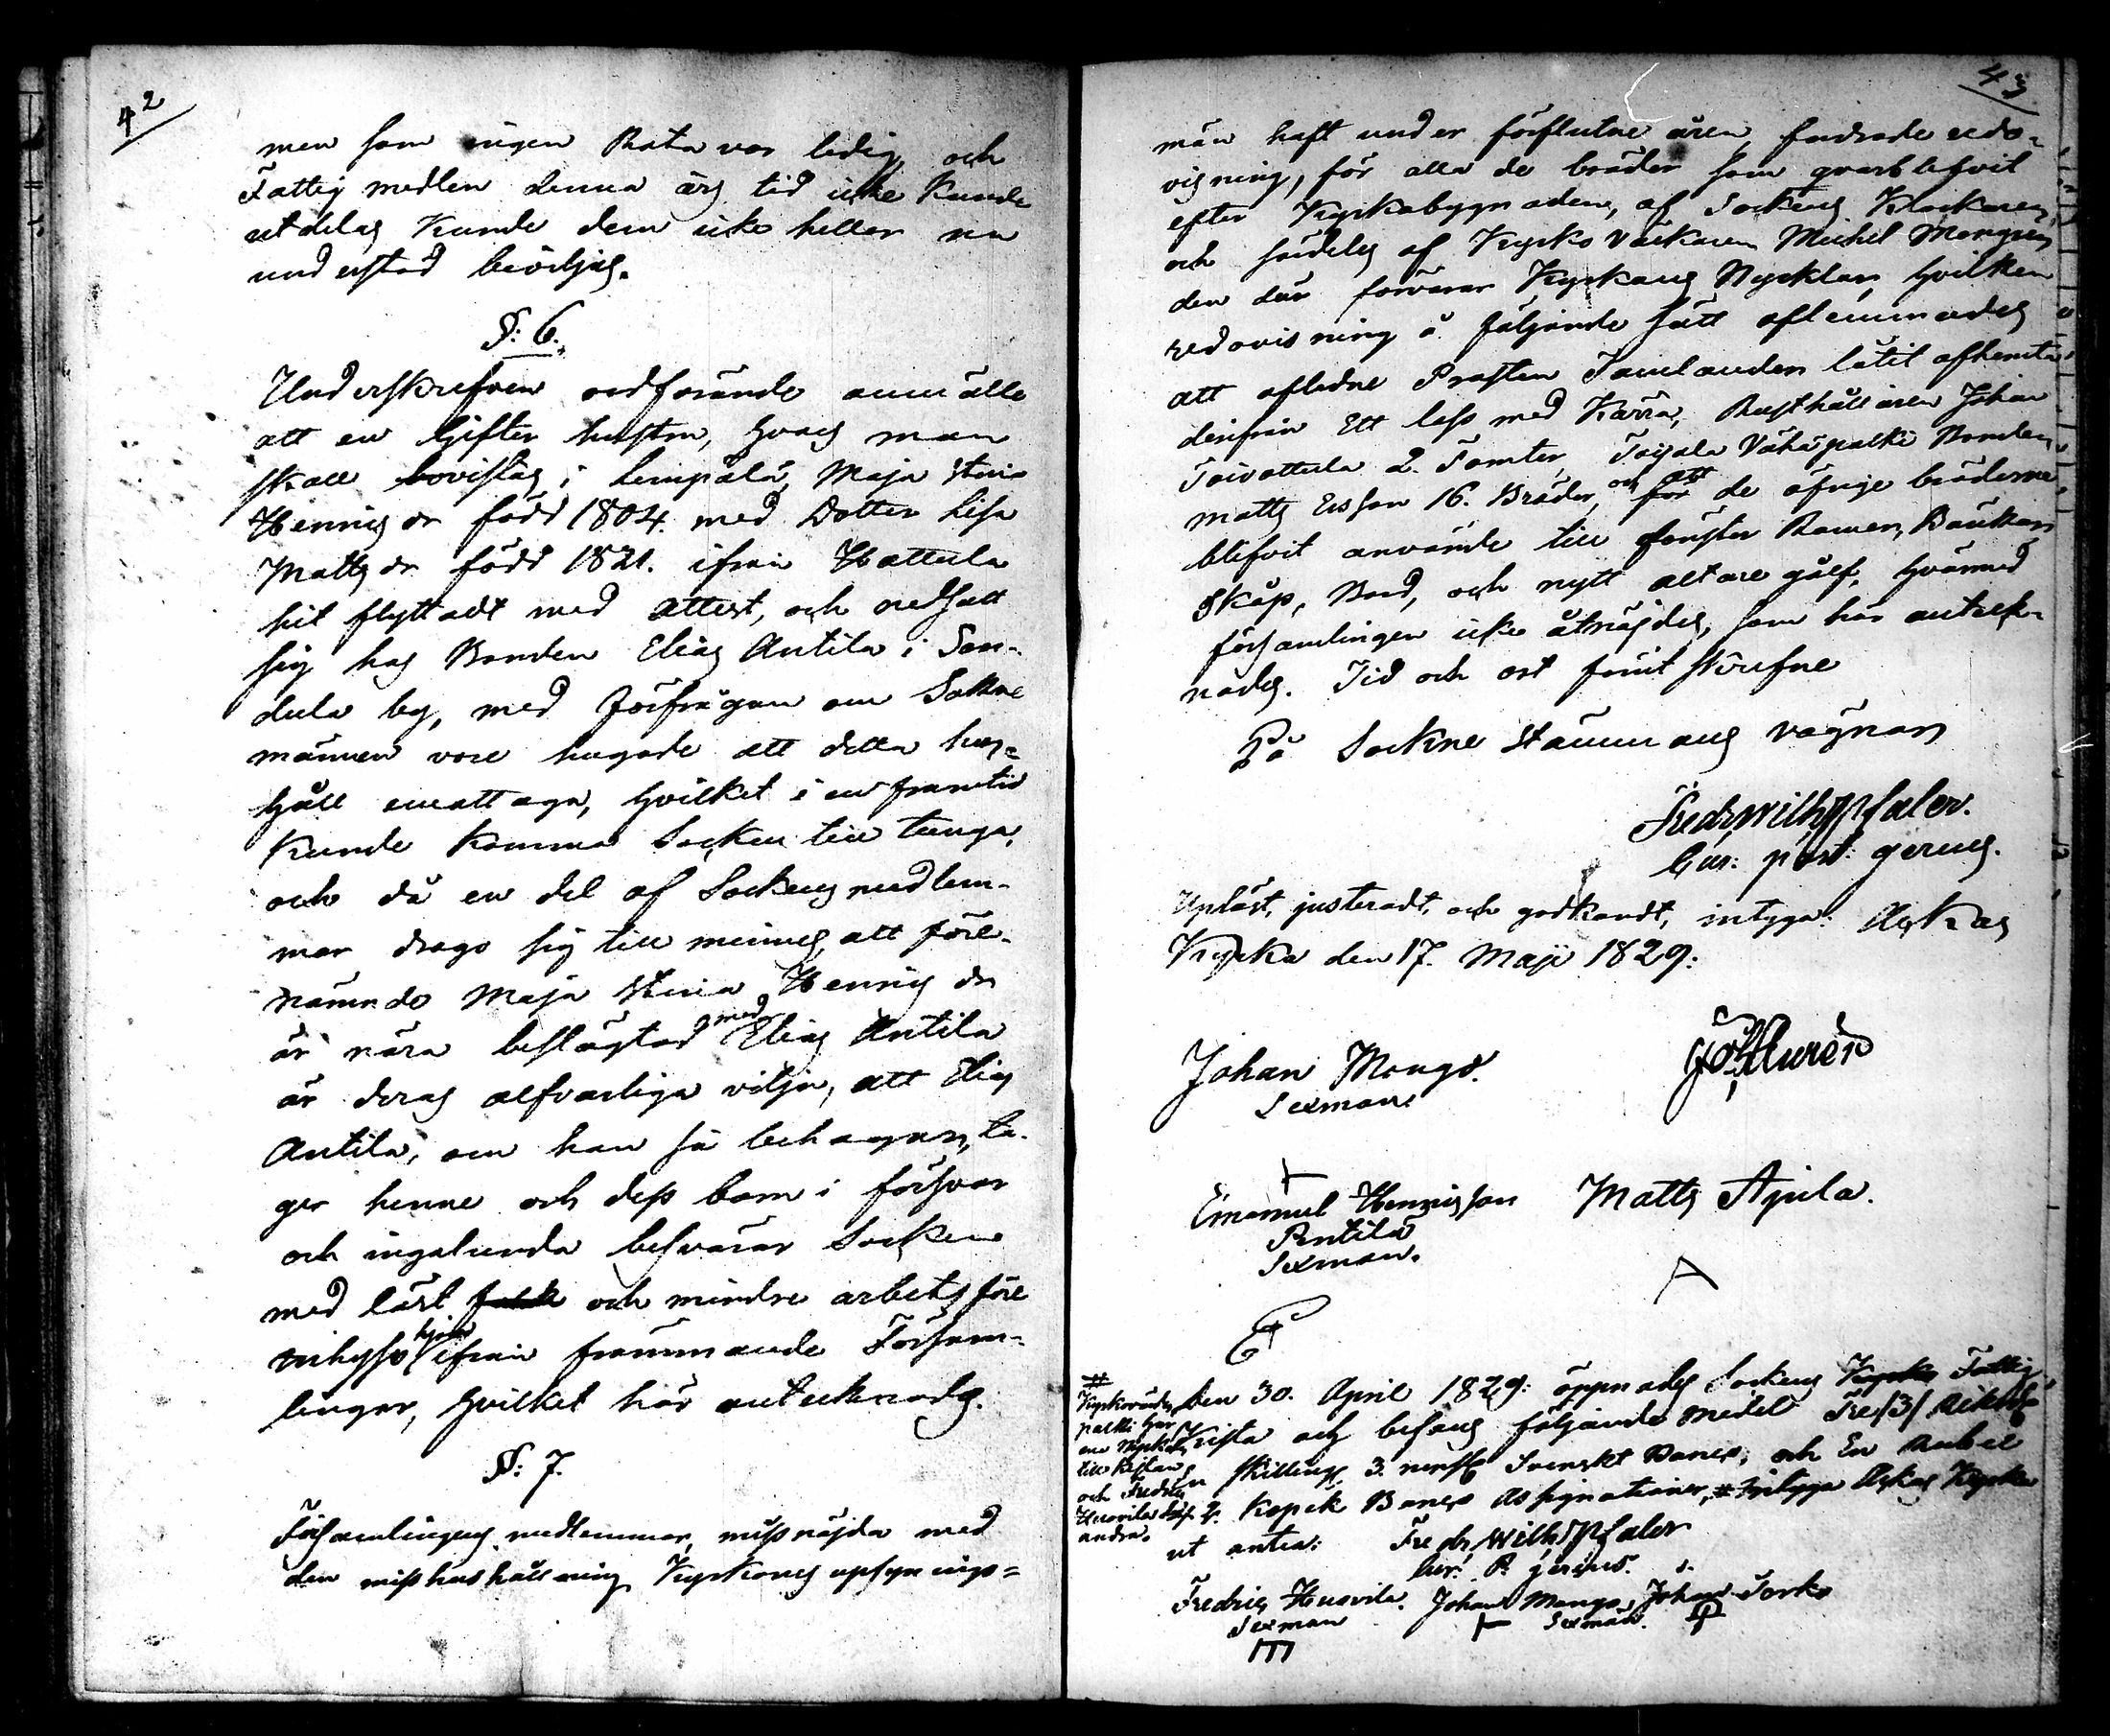 42
men som ingen Rota var ledig och
Fattig medlen denna års tid icke kunde
utdelas kunde dem icke heller nu
understöd beviljas.
§: 6.
Underskrefven ordförande anmälte
att en gifter hustru, hvars man
skall vistas i Lempälä, Maja Stina
Henrics dr född 1804. med Dotter Lisa
Matts dr född 1821. ifrån Hattula
hit flyttadt med attest, och nedsatt
sig hos Bonden Elias Antila i Son-
dula by, med förfrågan om Sokne
männen vore hugade att detta hus-
håll emottaga, hvilket i en framtid
kunde komma Socken till tunga,
och då en del af Sockens medlem-
mar drogo sig till minnes, att före-
nämnde Maja Stina Henrics dr
är nära beslägtad med Elias Antila
är deras alfvarliga vilja, att Elias
Antila, om han så behagar, ta-
ger henne och dess barn i försvar
och ingalunda besvärar Socken
med löst folk och mindre arbetsföre
inhyses hjon ifrån främmande Försam-
lingar, hvilket här antecknades.
§: 7.
Församlingens medlemmar, missnöjda med
den misshushållning Kyrkones upsynings-
43
män haft under förflutne åren, fordrade redo-
visning, för alla de bräder som qvarblefvit
efter Kyrkobyggnaden, af Sockens Klockaren,
och färdeles af Kyrko Väckaren Michel
den där förvarar Kyrkans Nycklar, hvilken
redovisning å följande sätt aflemnades
att afledne Prosten låtit afhemta
derifrån Ett lass med Kärra, Rusthållaren Johan
Toivottula 2. Tomter, Toijala Vähäpalki Bonden
Matts Ersson 16. Bräder, och att för de öfrige bräderne
blifvit använde till fönster Ramar, Bänkar,
Skåp, Bord, och nytt altare gålf, hvarmed
församlingen icke åtnöjdes, som här anteck-
nades. Tid och ort förut skrefne
På Sockne Stämmans vägnar
Fredr Wilh Pfaler.
Cur: past: gerens.
Upläst, justeradt, och godkändt, intyga: Akkas
Kyrka den 17. Maji 1829:
Johan Mango.
Sexman.
Emanuel Henricsson
Pentilä
Sexman.
Matts Ajula.
A
Den 30. April 1829: öppnades Sockens Kyrko Fattig
Kista och befans följande medel Tre /3/ Riksd
Skilling 3. Svenskt Banco, och En Rubel
Kopek Banco Assignationer, # intyga Akkas Kyrka
ut antea: Fredr Wilh Pfaler
Cur: P. gerens.
#
palki har
en Nyckel
till Kistan
och Fredric
Huovila den
andra.
Fredric Huovila. Johan Mango, Johan Jorko
Sexman Sexman.